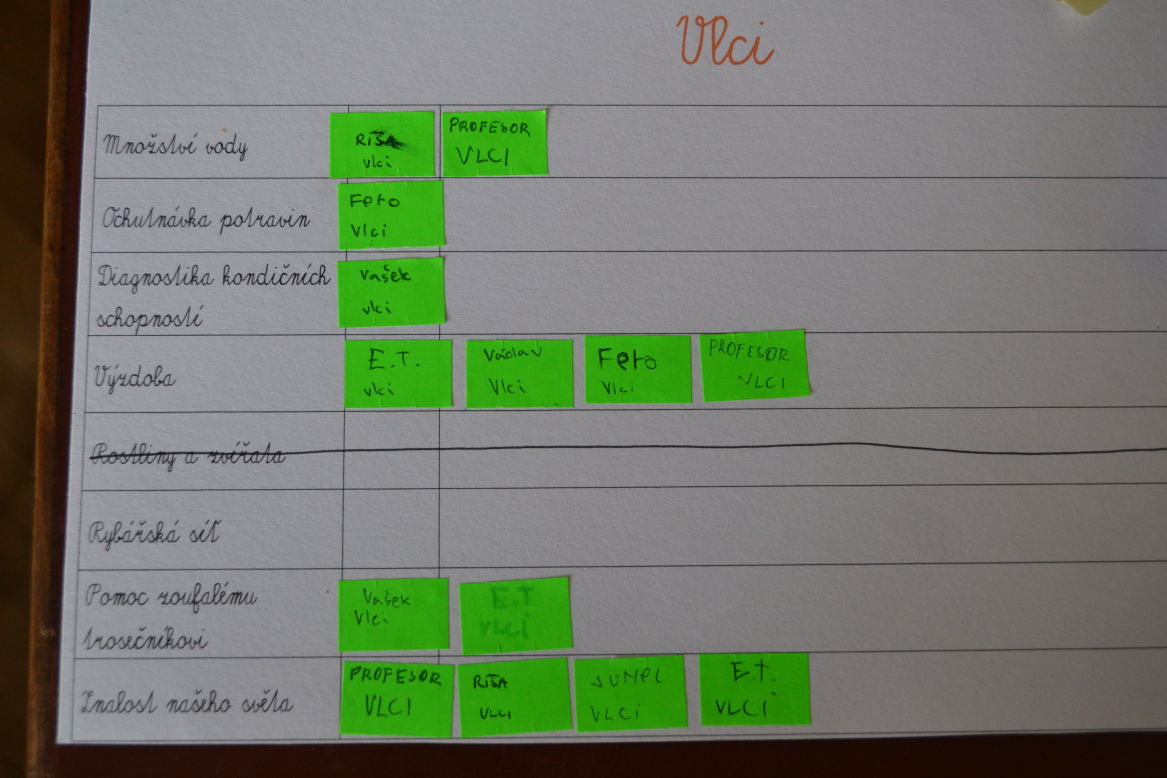 Vlci
Množství vody
RÍŠA
vlci
PROFESOR
VLCI
Ochutnávka potravin
Fero
Vlci
Diagnostika kondičních
schopností
Vašek
vlci
Výzdoba
E.T.
vlci
Václav
Vlci
Fero
Vlci
PROFESOR
VLCI
Rostliny a zvířata
Rybářská síť
Pomoc zoufalému
trosečníkovi
Vašek
Vlci
E.T
VLCI
Znalost našeho světa
PROFESOR
VLCI
RÍŠA
VLCI
VLCI
E.T.
VLCI